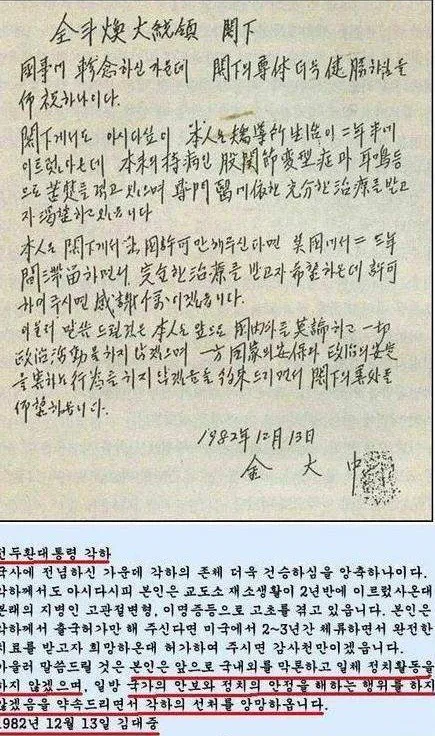 全斗煥大統領 閣下
国事에 軫念하신 가운데 閣下의 尊体 더욱 健勝하심을
仰祝하나이다.
閣下께서도 아시다싶이 本人은 矯導所生活이 二年半에
이르렀아온데 本来의 持病인 股関節変型症과 耳鳴等
으로 苦楚를 겪고 있으며 専門醫에依한 充分한 治療를받고
자 渇望하고있읍니다
本人은 閣下께서 出国許可만해주신다면 美国에서 二, 三年
間 滞留하면서 完全한 治療를 받고자 希望하온데 許可
하여주시면 感謝千万이겠읍니다.
아울러 말씀드릴것은 本人은 앞으로 国内外를莫論하고 一切
政治活動을하지 않겠으며 一方 国家의安保와 政治의安定
을害하는行為를하지 않겠음을 約束드리면서 閣下의善処를
仰望하옵니다.
1982年12月13日
金 大 中
전두환대통령 각하
국사에 전념하신 가운데 각하의 존체 더욱 건승하심을 앙축하나이다.
각하께서도 아시다시피 본인은 교도소 재소생활이 2년반에 이르렀사온대
본래의 지병인 고관절변형, 이명증등으로 고초를 겪고 있읍니다. 본인은
각하께서 출국허가만 해 주신다면 미국에서 2~3년간 체류하면서 완전한
치료를 받고자 희망하온대 허가하여 주시면 감사천만이겠습니다.
아울러 말씀드릴 것은 본인은 앞으로 국내외를 막론하고 일체 정치활동을
하지 않겠으며, 일방 국가의 안보와 정치의 안정을해하는 행위를 하지
않겠음을 약속드리면서 각하의 선처를 앙망하옵니다.
1982년 12월 13일 김대중